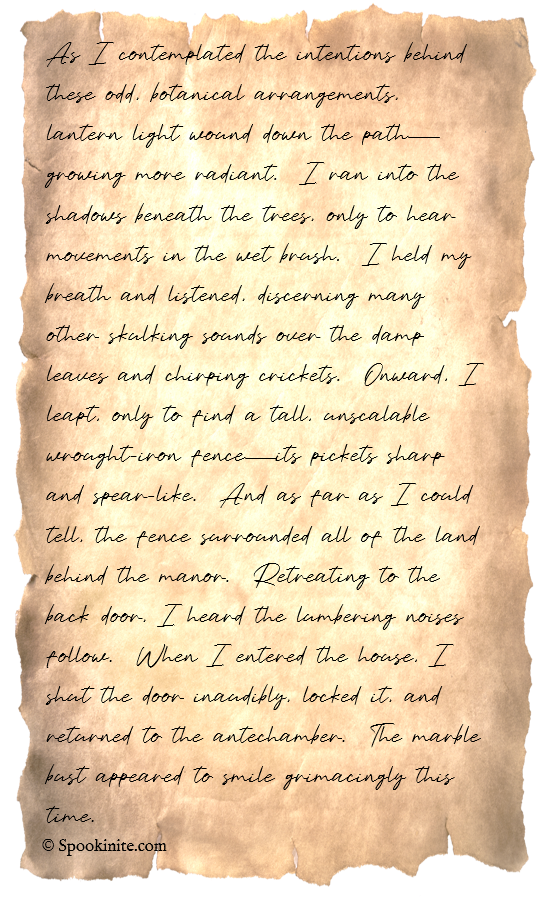 As I contemplated the intentions behind
these odd, botanical arrangements,
lantern light wound down the path—
growing more radiant.  I ran into the
shadows beneath the trees, only to hear
movements in the wet brush.  I held my
breath and listened, discerning many
other skulking sounds over the damp
leaves and chirping crickets.  Onward, I
leapt, only to find a tall, unscalable
wrought-iron fence—its pickets sharp
and spear-like.  And as far as I could
tell, the fence surrounded all of the land
behind the manor.  Retreating to the
back door, I heard the lumbering noises
follow.  When I entered the house, I
shut the door inaudibly, locked it, and
returned to the antechamber.  The marble
bust appeared to smile grimacingly this
time.
© Spookinite.com